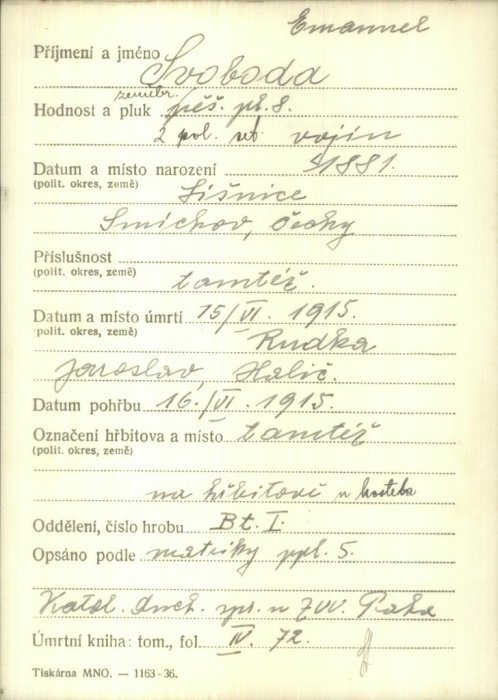 Emanuel
Příjmení a jméno Svoboda
zeměbr.
Hodnost a pluk pěš. pl. 8.
2 pol. set vojín
Datum a místo narození 1881.
(polit. okres, země) Lišnice
Smíchov, Čechy
Příslušnost
(polit. okres, země) tamtéž.
Datum a místo úmrtí 15/VI. 1915.
(polit. okres, země) Rudka
Jaroslav, Halič.
Datum pohřbu 16./VI. 1915.
Označení hřbitova a místo tamtéž
(polit. okres, země)
na hřbitově u kostela
Oddělení, číslo hrobu Bt. I.
Opsáno podle matriky ppl. 5.
Katol. duch. spr. u ZVV. Praha
Úmrtní kniha: tom., fol. IV. 72.
Tiskárna MNO. — 1163-36.